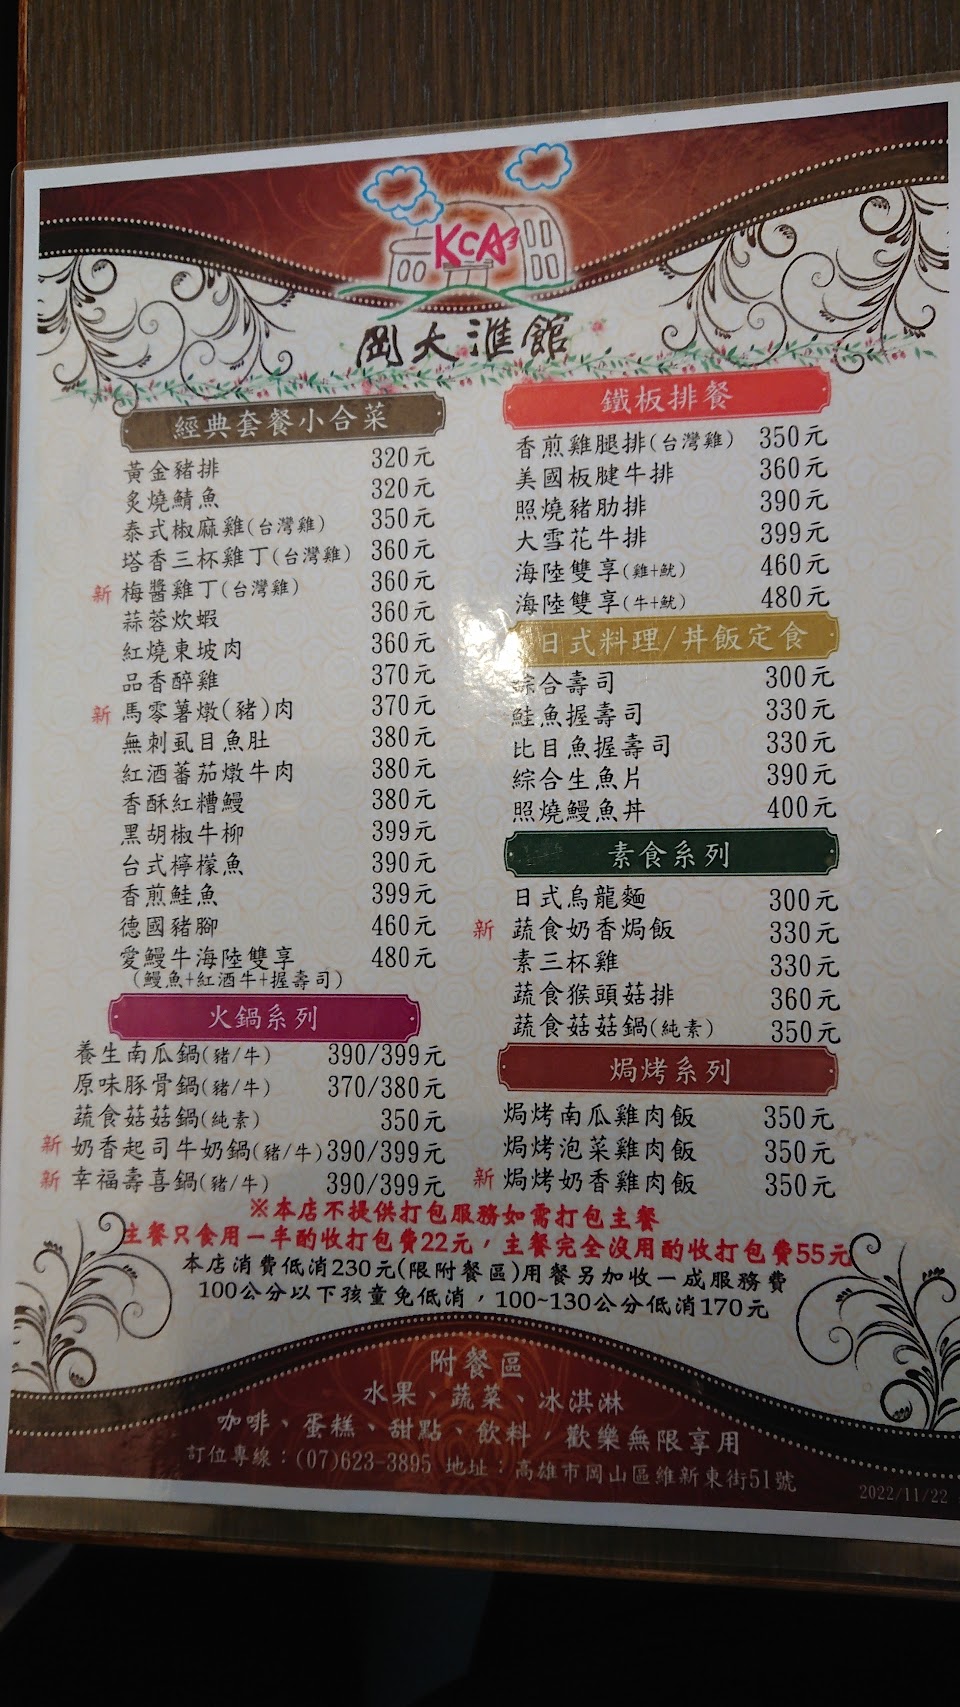 KCA
岡大滙館
經典套餐小合菜
黃金豬排 320元
炙燒鯖魚 320元
泰式椒麻雞(台灣雞) 350元
塔香三杯雞丁(台灣雞) 360元
新 梅醬雞丁(台灣雞) 360元
蒜蓉炊蝦 360元
紅燒東坡肉 360元
品香醉雞 370元
新 馬零薯燉(豬)肉 370元
無刺虱目魚肚 380元
紅酒蕃茄燉牛肉 380元
香酥紅糟鰻 380元
黑胡椒牛柳 399元
台式檸檬魚 390元
香煎鮭魚 399元
德國豬腳 460元
愛鰻牛海陸雙享 480元
(鰻魚+紅酒牛+握壽司)
火鍋系列
養生南瓜鍋(豬/牛) 390/399元
原味豚骨鍋(豬/牛) 370/380元
蔬食菇菇鍋(純素) 350元
新 奶香起司牛奶鍋(豬/牛) 390/399元
新 幸福壽喜鍋(豬/牛) 390/399元
鐵板排餐
香煎雞腿排(台灣雞) 350元
美國板腱牛排 360元
照燒豬肋排 390元
大雪花牛排 399元
海陸雙享(雞+魷) 460元
海陸雙享(牛+魷) 480元
日式料理/丼飯定食
綜合壽司 300元
鮭魚握壽司 330元
比目魚握壽司 330元
綜合生魚片 390元
照燒鰻魚丼 400元
素食系列
日式烏龍麵 300元
新 蔬食奶香焗飯 330元
素三杯雞 330元
蔬食猴頭菇排 360元
蔬食菇菇鍋(純素) 350元
焗烤系列
焗烤南瓜雞肉飯 350元
焗烤泡菜雞肉飯 350元
新 焗烤奶香雞肉飯 350元
※本店不提供打包服務如需打包主餐
主餐只食用一半酌收打包費22元，主餐完全沒用酌收打包費55元
本店消費低消230元(限附餐區)用餐另加收一成服務費
100公分以下孩童免低消，100~130公分低消170元
附餐區
水果、蔬菜、冰淇淋
咖啡、蛋糕、甜點、飲料，歡樂無限享用
訂位專線：(07)623-3895 地址：高雄市岡山區維新東街51號
2022/11/22